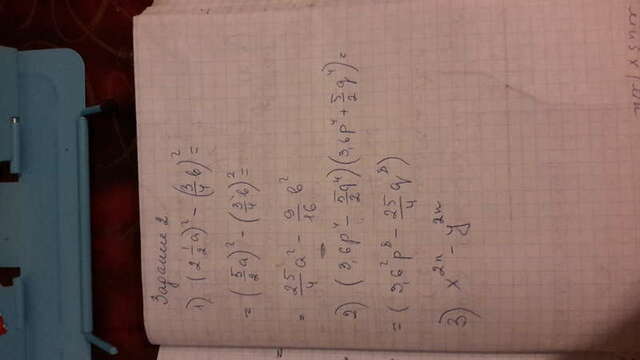 Задание 2
1) (2 1/2 a)² - (3/4 b)² =
= (5/2 a)² - (3/4 b)² =
= 25/4 a² - 9/16 b²
2) (3,6p⁴ - 5/2 q⁴)(3,6p⁴ + 5/2 q⁴) =
= (3,6²p⁸ - 25/4 q⁸)
3) x²ⁿ - y²ⁿ